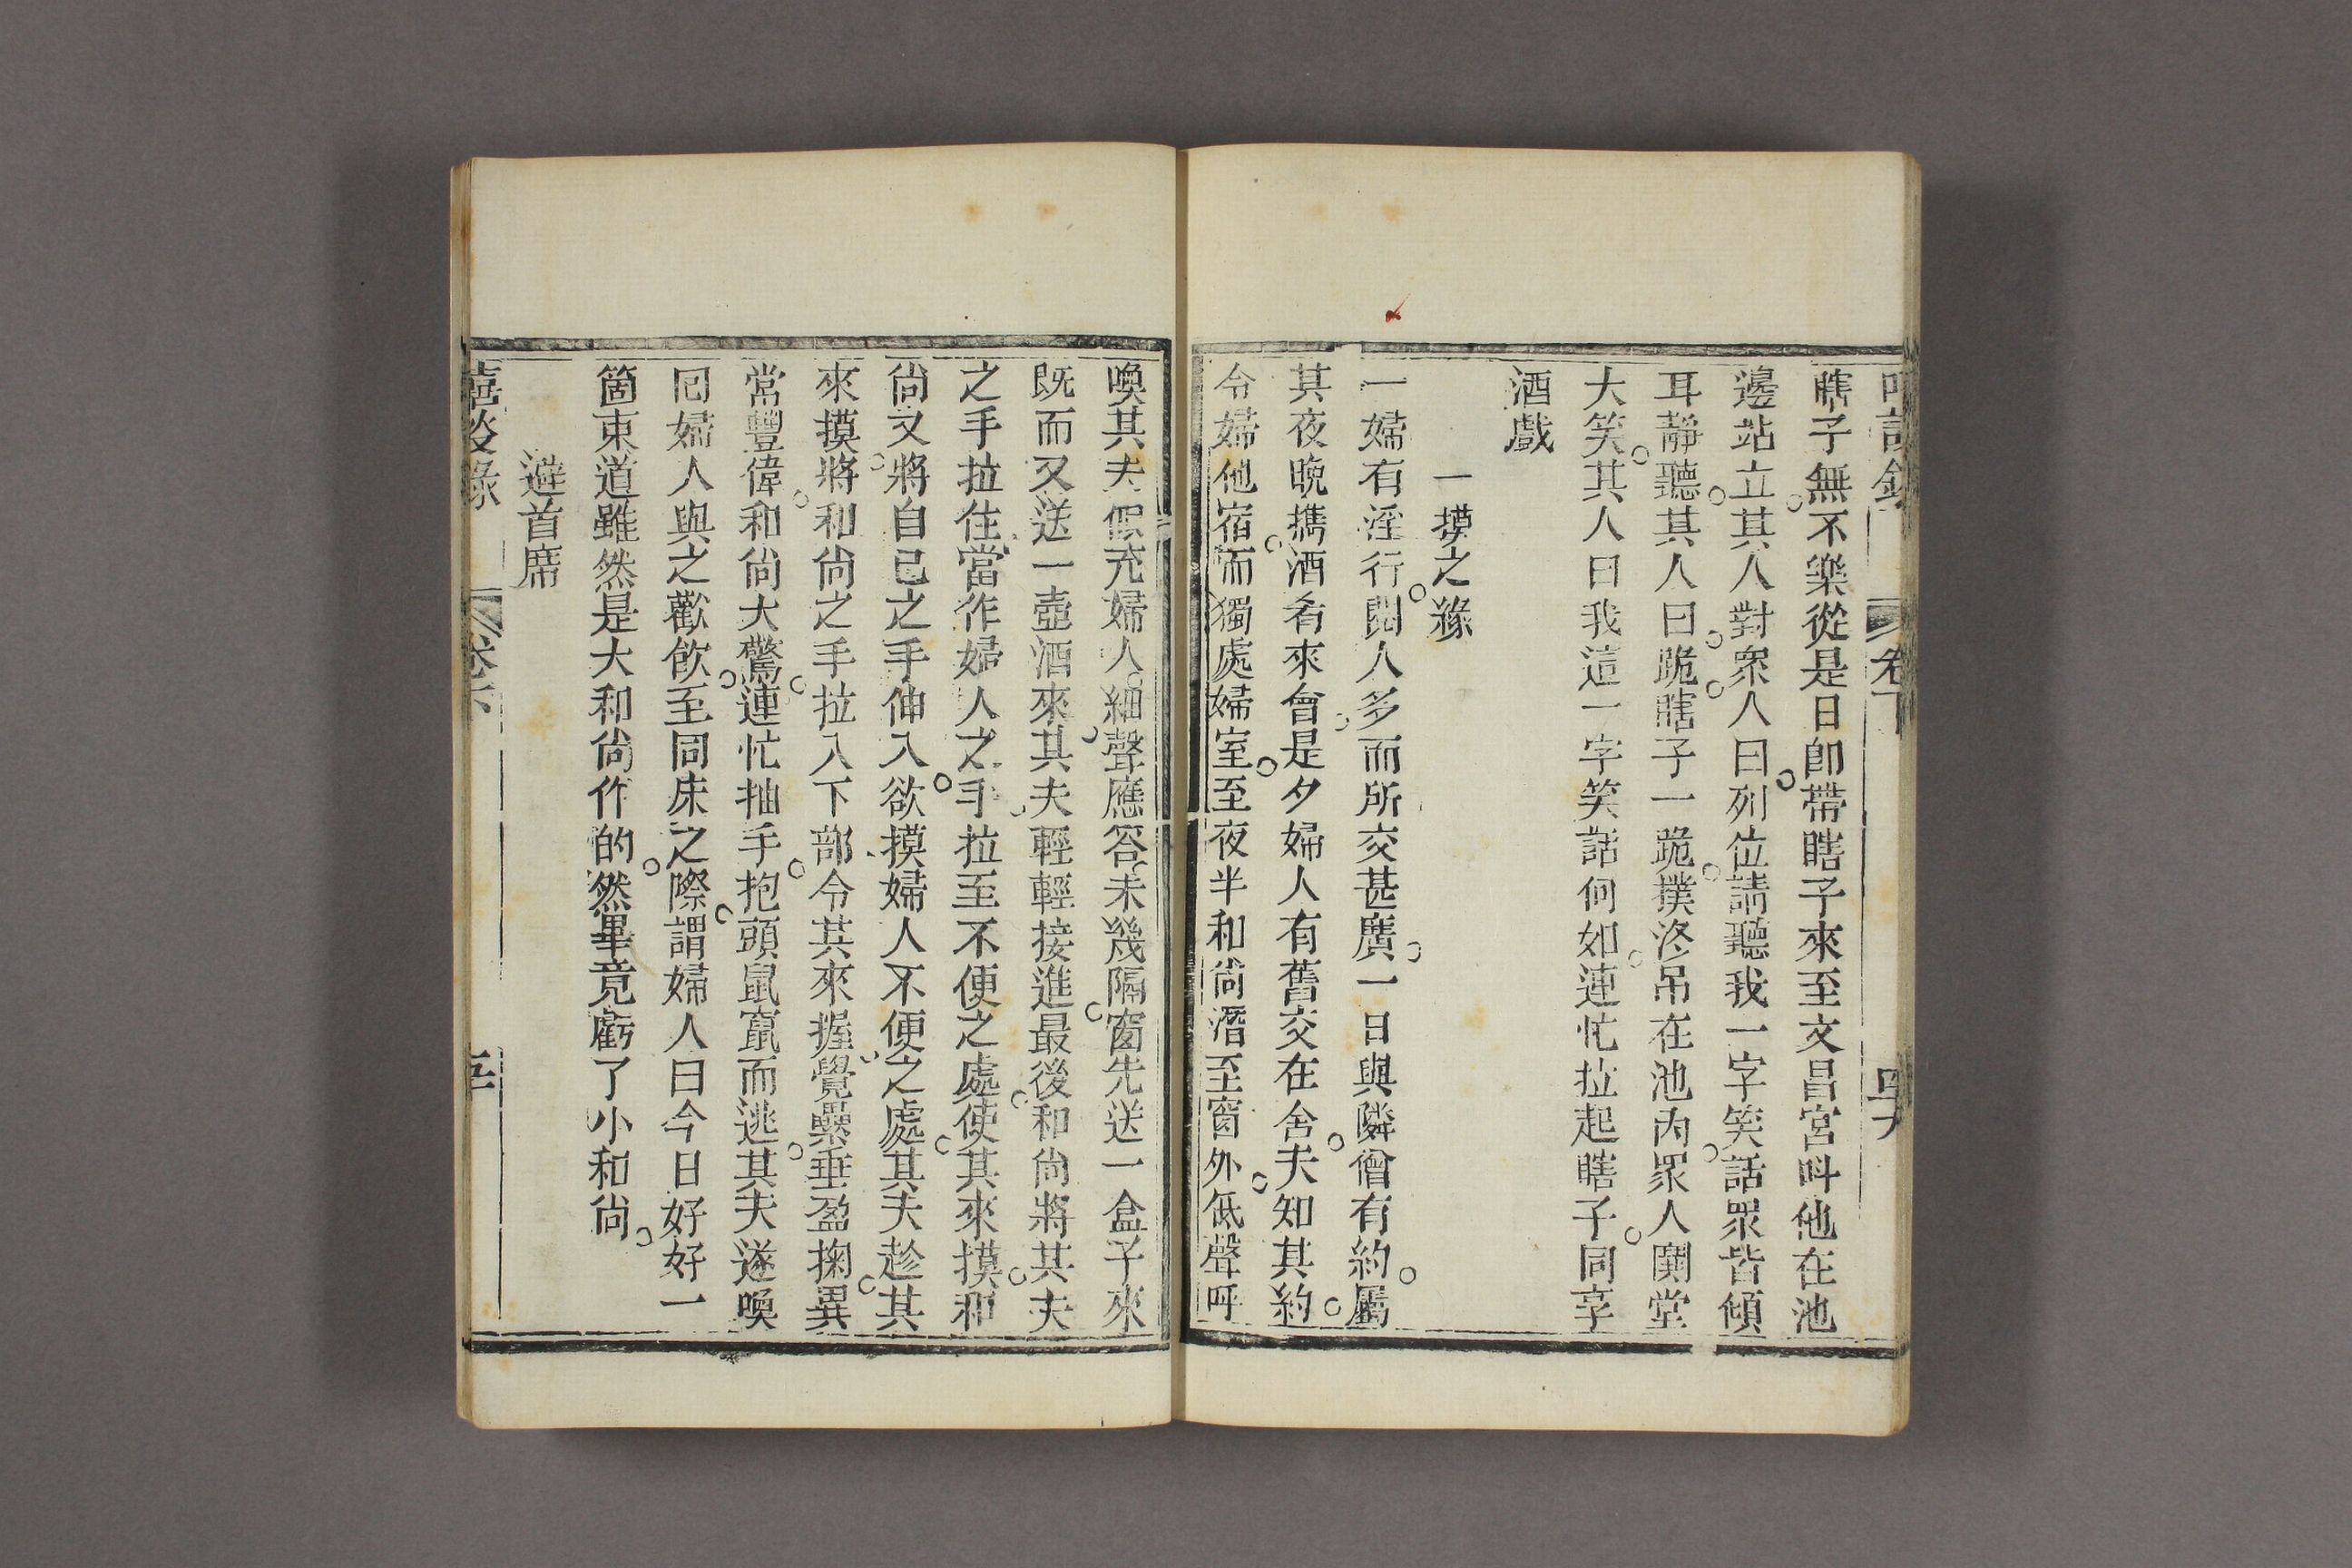 瞎子無不樂從是日卽帶瞎子來至文昌宮呌他在池
邊站立其人對眾人曰列位請聽我一字笑話眾皆傾
耳靜聽其人曰跪瞎子一跪撲洛吊在池內眾人鬨堂
大笑其人曰我這一字笑話何如連忙拉起瞎子同享
酒戲
一摸之緣
一婦有淫行閱人多而所交甚廣一日與隣僧有約屬
其夜晚擕酒肴來會是夕婦人有舊交在舍夫知其約
令婦他宿而獨處婦室至夜半和尙潛至窗外低聲呼
喚其夫假充婦人細聲應答未幾隔窗先送一盒子來
旣而又送一壺酒來其夫輕輕接進最後和尙將其夫
之手拉住當作婦人之手拉至不便之處使其來摸和
尙又將自已之手伸入欲摸婦人不便之處其夫趁其
來摸將和尙之手拉入下部令其來握覺纍垂盈掬異
常豐偉和尙大驚連忙抽手抱頭鼠竄而逃其夫遂喚
囘婦人與之歡飮至同床之際謂婦人曰今日好好一
箇東道雖然是大和尙作的然畢竟虧了小和尙
避首席
嘻談錄 卷下